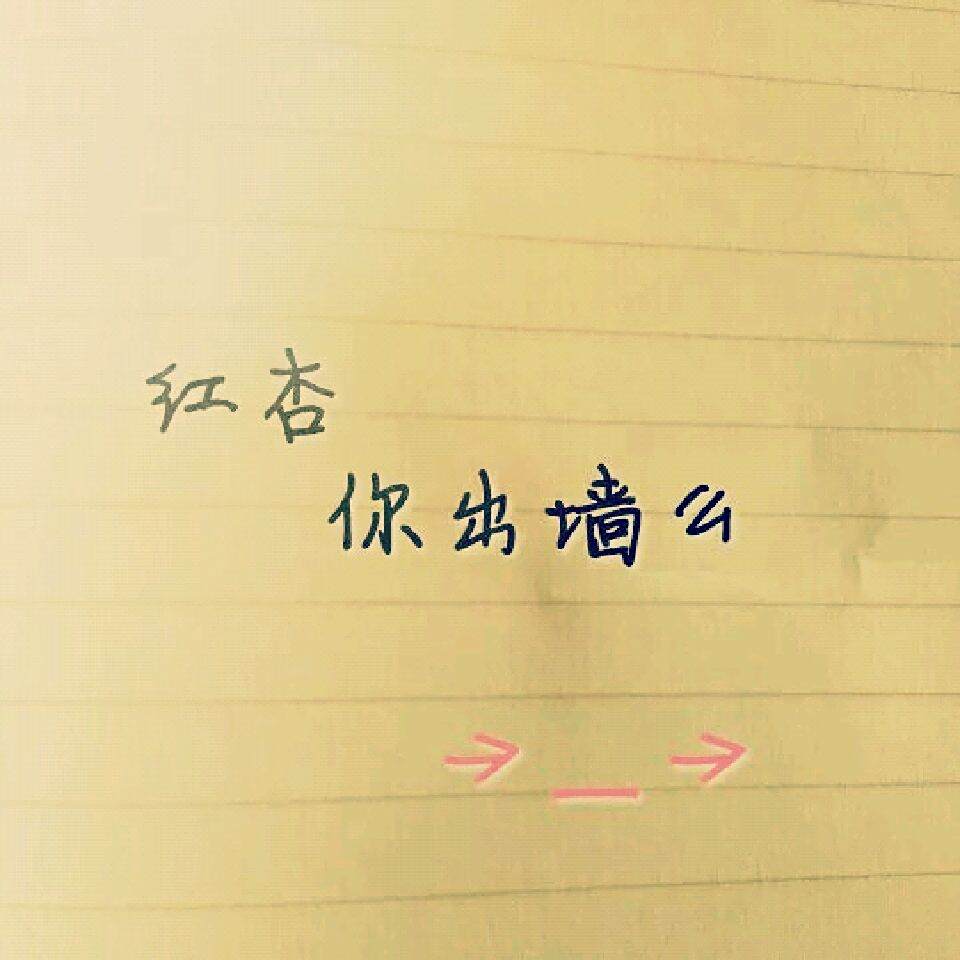 红杏
你出墙么
→_→